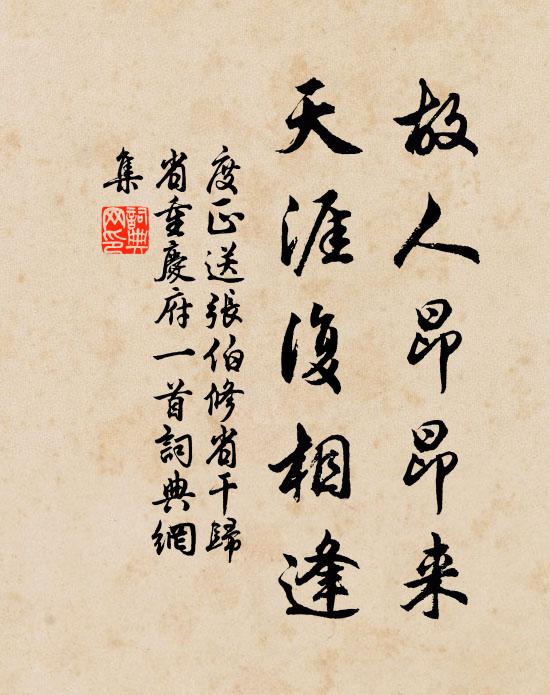 故人昂昂来
天涯復相逢
度正送張伯修省干歸
省重慶府一首詞典網
集
詞典
网印